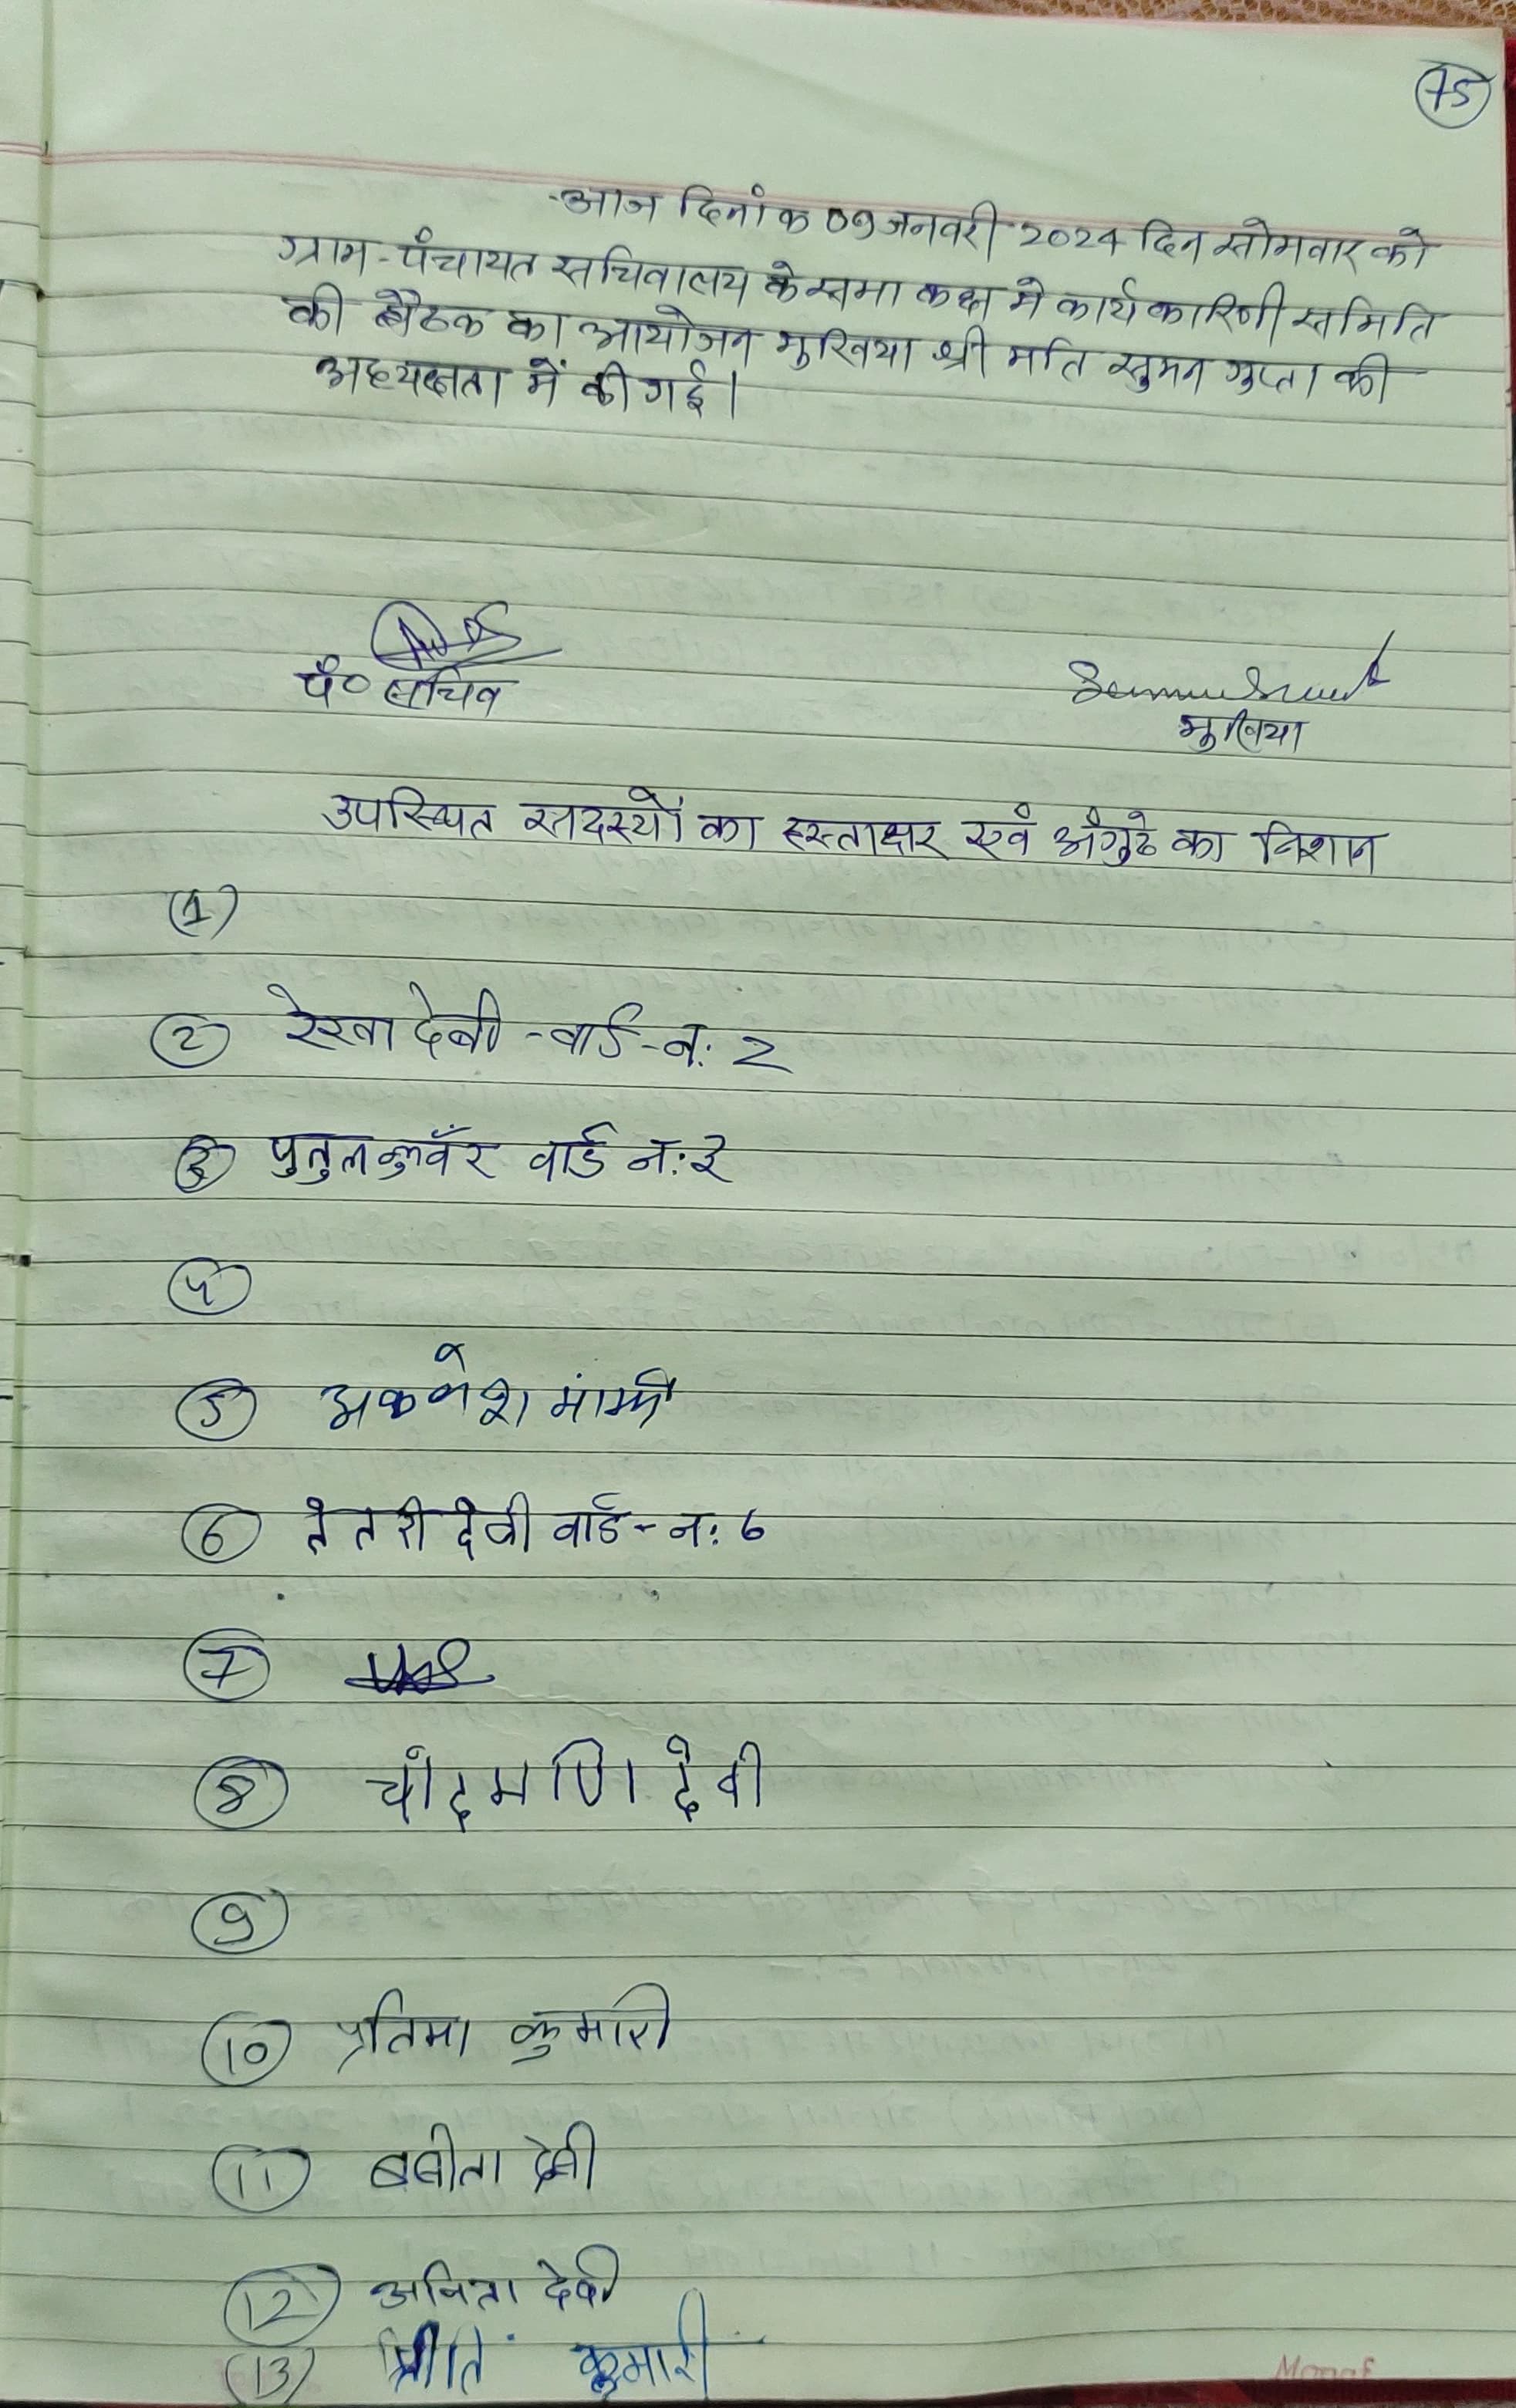 75
आज दिनांक 09 जनवरी 2024 दिन सोमवार को
ग्राम-पंचायत सचिवालय के सभा कक्ष में कार्यकारिणी समिति
की बैठक का आयोजन मुखिया श्री मति सुमन गुप्ता की
अध्यक्षता में की गई।
पं० सचिव
मुखिया
उपस्थित सदस्यों का हस्ताक्षर एवं अँगुठे का निशान
(1)
(2) रेखा देवी - वार्ड - न: 2
(3) पुतुल कुवँर वार्ड न: 3
(4)
(5)
(6) तेतरी देवी वार्ड - न: 6
(7)
(8) चांदमणि देवी
(9)
(10) प्रतिमा कुमारी
(11) बबीता देवी
(12) अनिता देवी
(13) प्रीति कुमारी